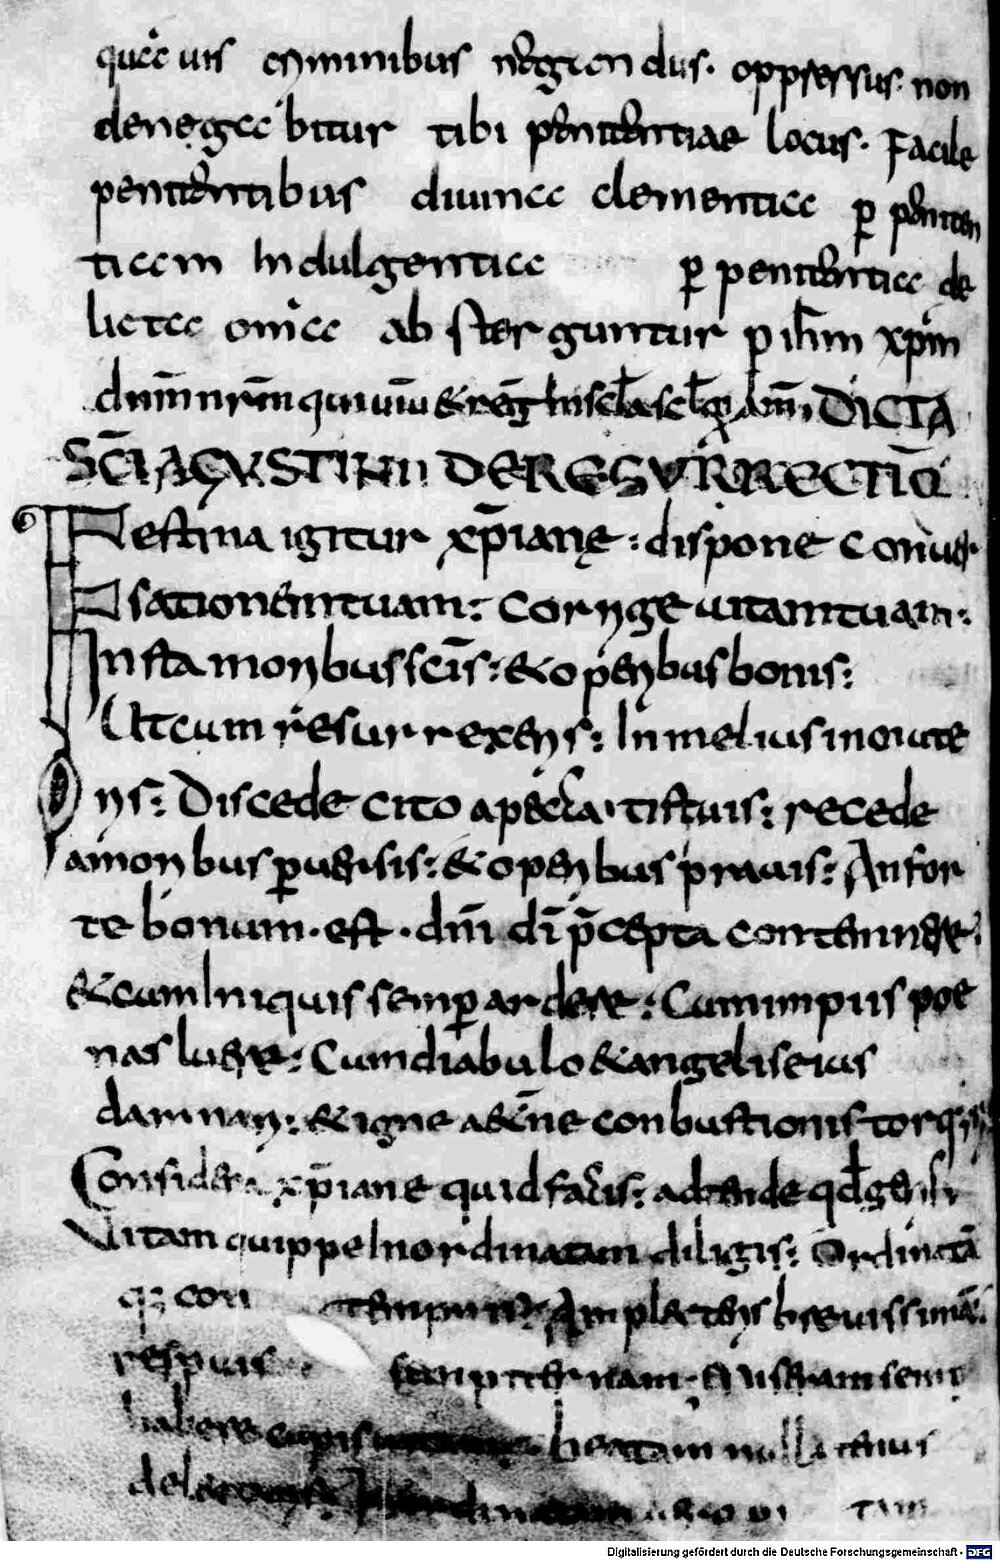 quauis criminibus nec gendus. oppressus. non
denegabitur tibi penitentiae locus. Facile
penitentibus diuina clementia p̱ peniten
tiam Indulgentia p̱ penitentia de
licta om̄ia ab sterguntur p ih̄m xp̄m
dn̄m nr̄m qui uiū & reḡ In sc̄la scl̄ōꝝ am̄ DICTA
SC̄I AGVSTINI DE RESURRECTIŌ
Festina igitur xp̄iane: dispone Conuer
sationem tuam: Corrige uitam tuam:
In sta moribus sc̄is: & operibus bonis:
Ut cum resurrexeris: In melius inouate
ris: Discede cito a pecca tis tuis: recede
a moribus peruersis: & operibus prauis: An for
te bonum. est. dn̄i dī p̄cepta contemnere:
& cum Iniquis semp̱ ardere: Cum impiis poe
nas luere: Cum diabulo & angelis eius
damnari: & igne aet̄ne conbustionis torq
Considera xp̄iane quid facis: adtende qd̄ geris
Vitam quippe Inordinatam diligis: Ordinatā
q; con Amplecteris breuissimā:
respuis sempiternam. Miseram semp
habere cupis beatam nullatenus